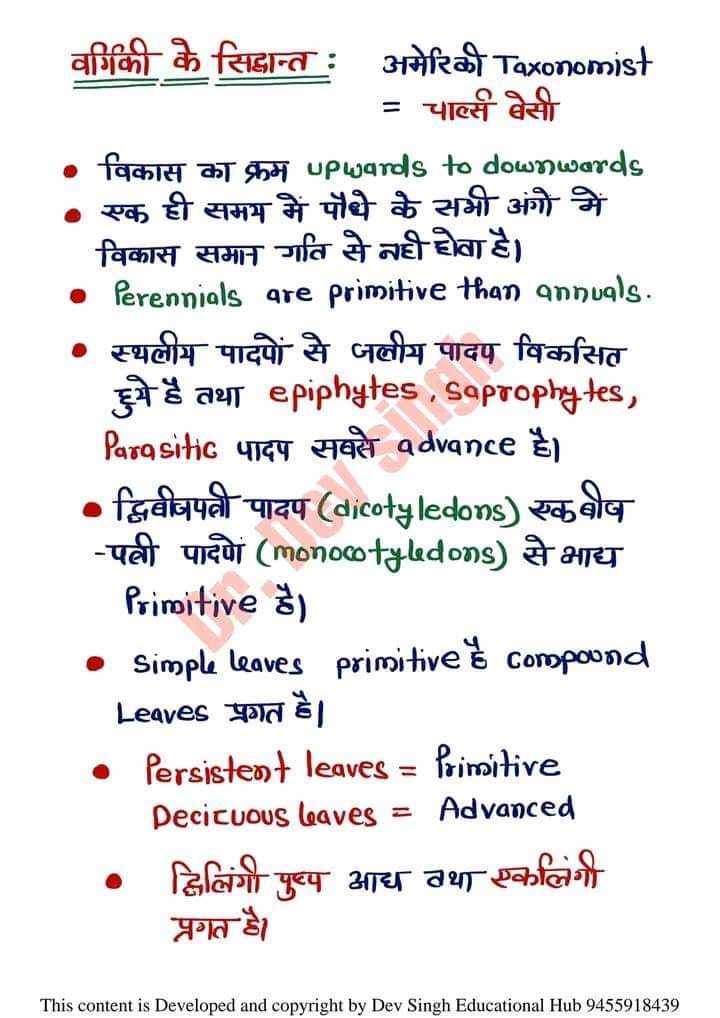 वर्गिकी के सिद्धान्त : अमेरिकी Taxonomist
= चार्ल्स बेसी
• विकास का क्रम upwards to downwards
• एक ही समय में पौधे के सभी अंगो में
विकास समान गति से नही होता है।
• Perennials are primitive than annuals.
• स्थलीय पादपों से जलीय पादप विकसित
हुये है तथा epiphytes, saprophytes,
Parasitic पादप सबसे advance है।
• द्विबीजपत्री पादप (dicotyledons) एक बीज
-पत्री पादपों (monocotyledons) से आद्य
Primitive है।
• Simple leaves primitive है compound
Leaves प्रगत है।
• Persistent leaves = Primitive
Decicuous leaves = Advanced
• द्विलिंगी पुष्प आद्य तथा एकलिंगी
प्रगत है।
Dr. Dev Singh
This content is Developed and copyright by Dev Singh Educational Hub 9455918439